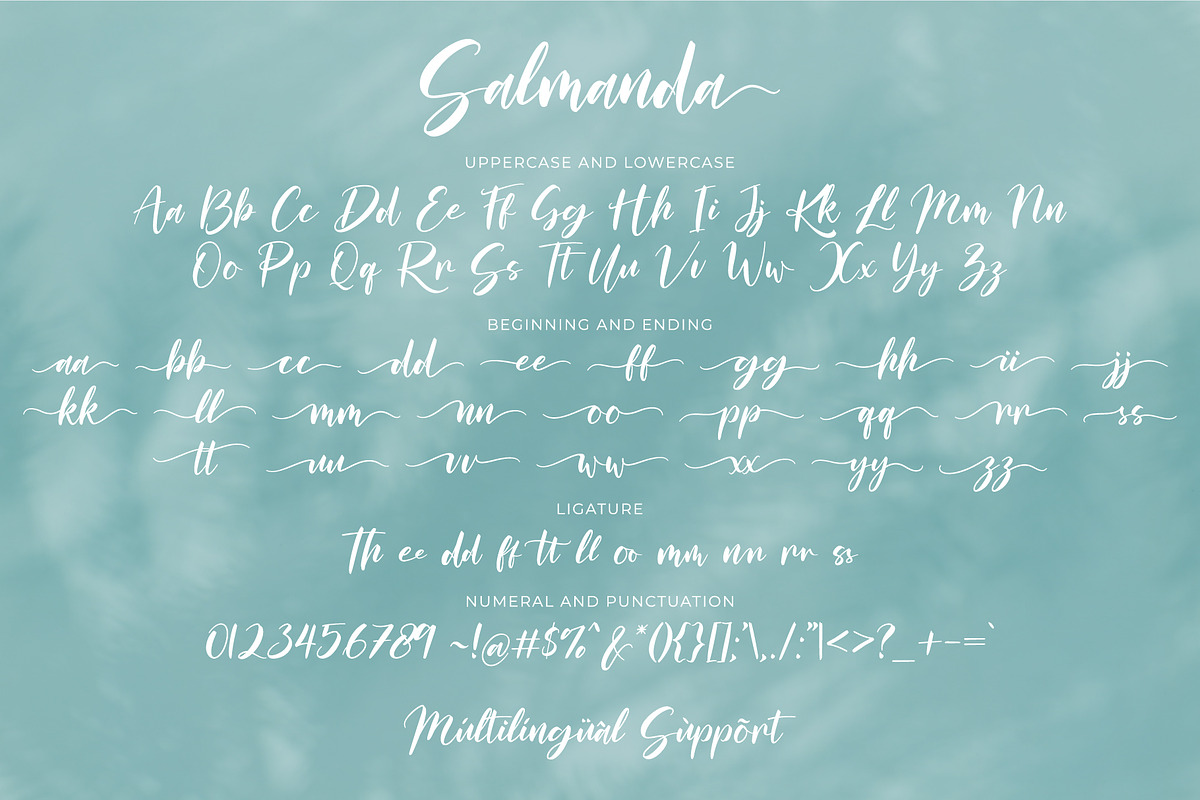 Salmanda
UPPERCASE AND LOWERCASE
Aa Bb Cc Dd Ee Ff Gg Hh Ii Jj Kk Ll Mm Nn
Oo Pp Qq Rr Ss Tt Uu Vv Ww Xx Yy Zz
BEGINNING AND ENDING
aa bb cc dd ee ff gg hh ii jj
kk ll mm nn oo pp qq rr ss
tt uu vv ww xx yy zz
LIGATURE
Th ee dd ff tt ll oo mm nn rr ss
NUMERAL AND PUNCTUATION
0123456789 ~!@#$%^&*(){}[];'\,./:"|<>?_+-=`
Múltilíngüâl Sùppõrt